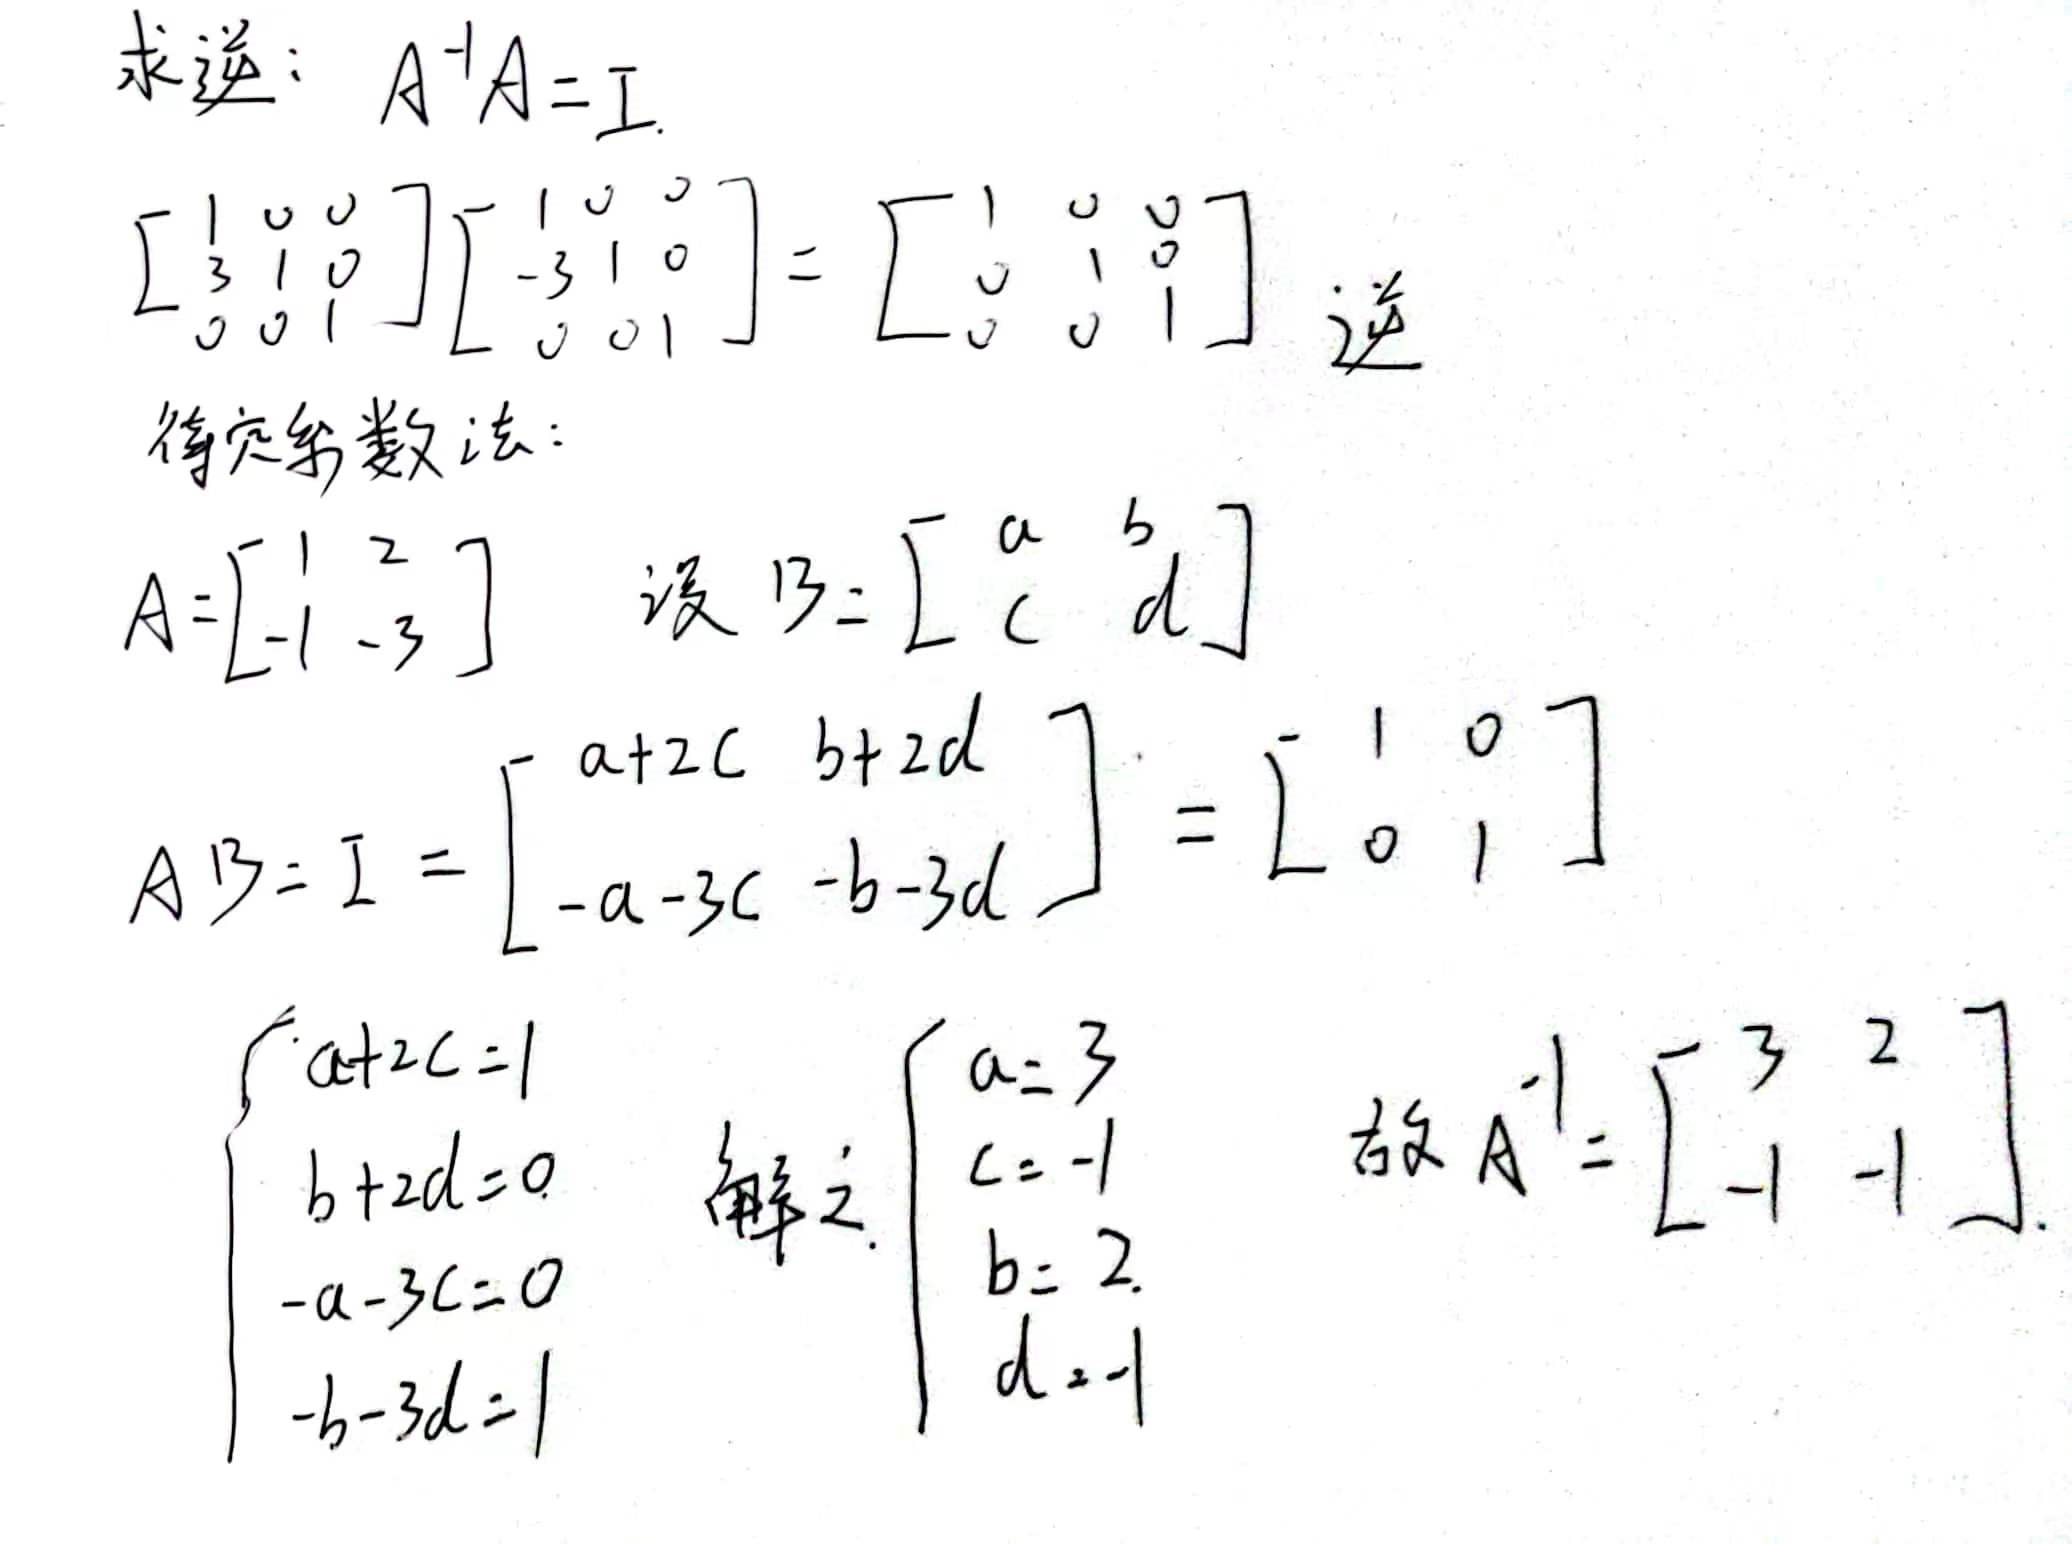 求逆: A⁻¹A=I.
[1 0 0; 3 1 0; 0 0 1] [1 0 0; -3 1 0; 0 0 1] = [1 0 0; 0 1 0; 0 0 1] 逆
待定系数法:
A=[1 2; -1 -3] 设 B=[a b; c d]
AB=I=[a+2c b+2d; -a-3c -b-3d]=[1 0; 0 1]
a+2c=1
b+2d=0
-a-3c=0
-b-3d=1
解之.
a=3
c=-1
b=2.
d=-1
故 A⁻¹=[3 2; -1 -1].